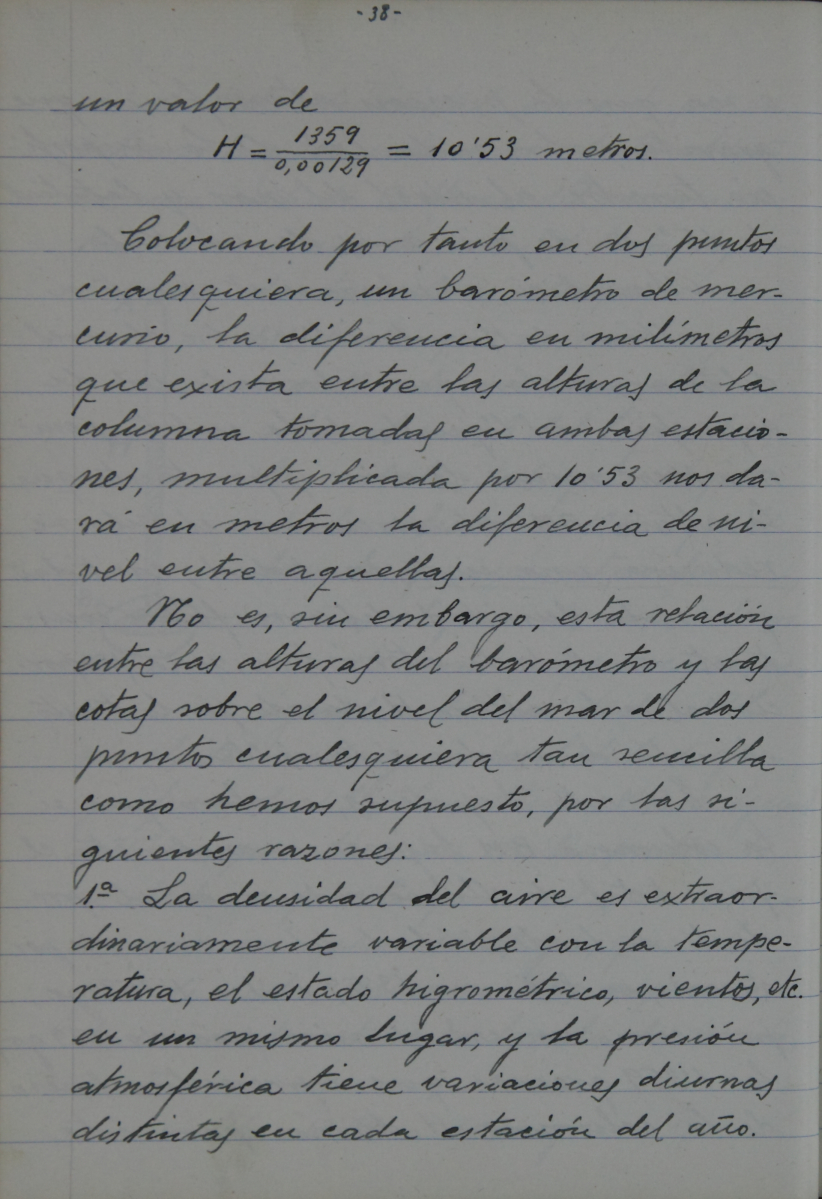 -38-
un valor de
H = 1359 / 0,00129 = 10'53 metros.
Colocando por tanto en dos puntos
cualesquiera, un barómetro de mer-
curio, la diferencia en milímetros
que exista entre las alturas de la
columna tomadas en ambas estacio-
nes, multiplicada por 10'53 nos da-
rá en metros la diferencia de ni-
vel entre aquellas.
No es, sin embargo, esta relación
entre las alturas del barómetro y las
cotas sobre el nivel del mar de dos
puntos cualesquiera tan sencilla
como hemos supuesto, por las si-
guientes razones:
1.ª La densidad del aire es extraor-
dinariamente variable con la tempe-
ratura, el estado higrométrico, vientos, etc.
en un mismo lugar, y la presión
atmosférica tiene variaciones diurnas
distintas en cada estación del año.